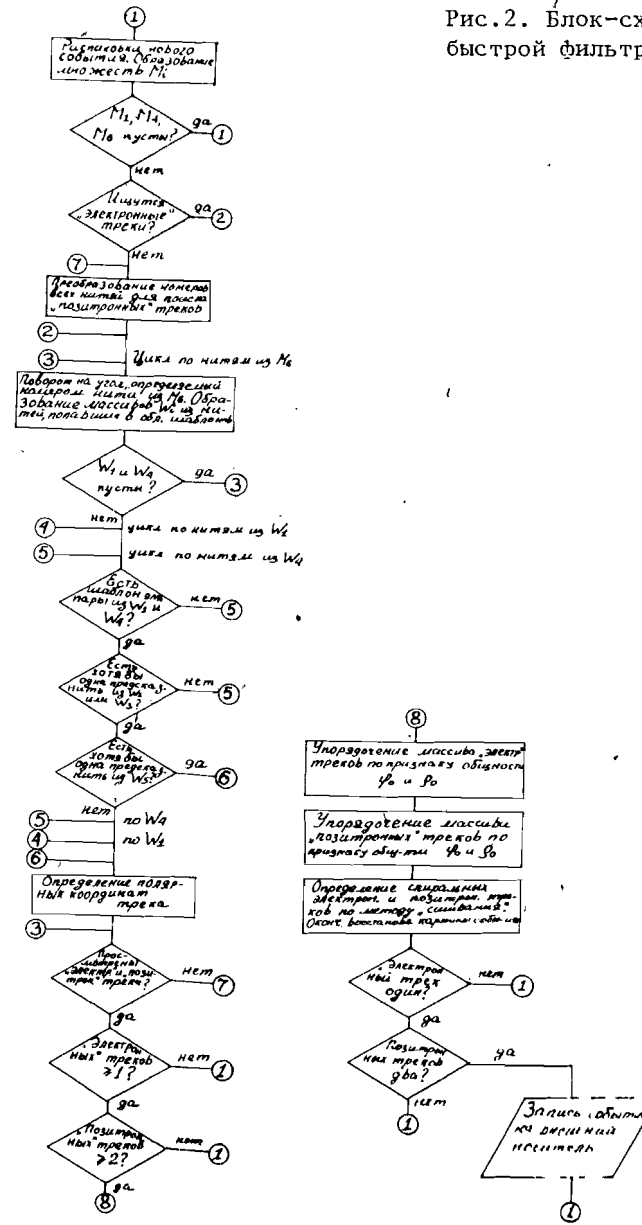 Рис.2. Блок-сх
быстрой фильтр
1
Распаковка нового
события. Образование
множеств Mi
M1, M4,
M6 пусты?
да
1
нет
Ищутся
„электронные"
треки?
да
2
нет
7
Преобразование номеров
всех нитей для поиска
„позитронных" треков
2
3
Цикл по нитям из M6
Поворот на угол, определяемый
номером нити из M6. Обра-
зование массивов Wi из ни-
тей, попавших в обл. шаблона
W1 и W4
пусты?
да
3
нет
4
цикл по нитям из W1
5
цикл по нитям из W4
Есть
шаблон для
пары из W1 и
W4?
нет
5
да
Есть
хотя бы
одна предсказ.
нить из W2
или W3?
нет
5
да
Есть
хотя бы
одна предсказ.
нить из W5?
да
6
нет
5
по W4
4
по W1
6
Определение поляр-
ных координат
трека
3
Прос-
мотрены
„электр" и „пози-
трон" треки?
нет
7
да
„Электрон
ных" треков
≥1?
нет
1
да
„Позитрон
ных" треков
≥2?
нет
1
да
8
8
Упорядочение массива „электр"
треков по признаку общности
φ0 и ρ0
Упорядочение массива
„позитронных" треков по
признаку общ-ти φ0 и ρ0
Определение спиральных
электрон. и позитрон. тре-
ков по методу „сшивания".
Оконч. восстановл. картины события
„Электрон
ный трек
один?
нет
1
да
Позитрон
ных треков
два?
да
нет
1
Запись событ
на внешний
носитель
1